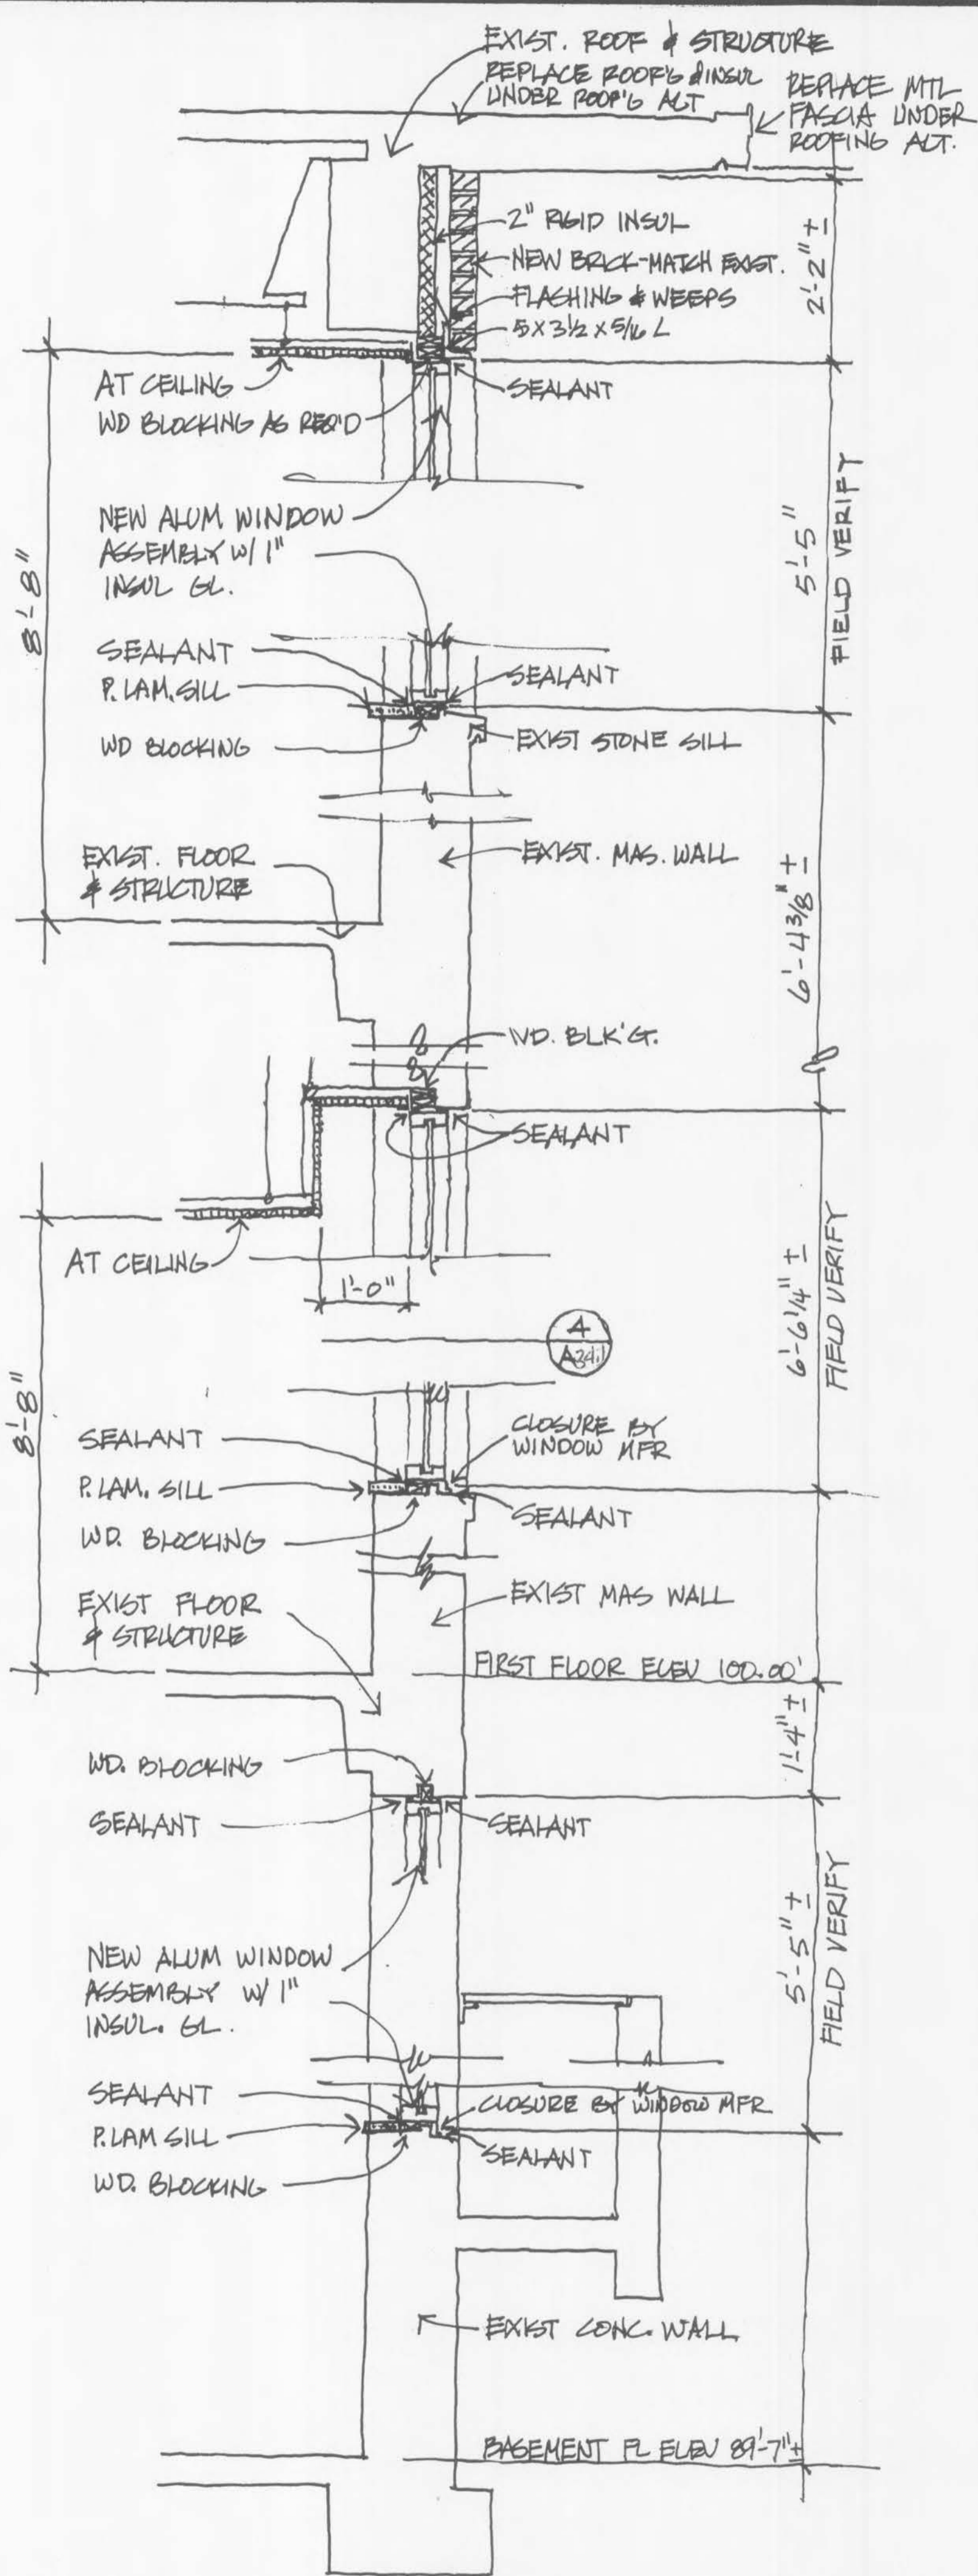 EXIST. ROOF & STRUCTURE
REPLACE ROOF'G & INSUL
UNDER ROOF'G ALT
REPLACE MTL
FASCIA UNDER
ROOFING ALT.
2" RIGID INSUL
NEW BRICK-MATCH EXIST.
FLASHING & WEEPS
5 X 3 1/2 X 5/16 L
2'-2" ±
AT CEILING
WD BLOCKING AS REQ'D
SEALANT
NEW ALUM WINDOW
ASSEMBLY W/ 1"
INSUL GL.
8'-8"
5'-5"
FIELD VERIFY
SEALANT
P. LAM. SILL
WD BLOCKING
SEALANT
EXIST STONE SILL
EXIST. FLOOR
& STRUCTURE
EXIST. MAS. WALL
6'-4 3/8" ±
WD. BLK'G.
SEALANT
AT CEILING
1'-0"
4
6'-6 1/4" ±
FIELD VERIFY
8'-8"
SEALANT
P. LAM. SILL
WD. BLOCKING
CLOSURE BY
WINDOW MFR
SEALANT
EXIST FLOOR
& STRUCTURE
EXIST MAS WALL
FIRST FLOOR ELEV 100.00'
1'-4" ±
WD. BLOCKING
SEALANT
SEALANT
NEW ALUM WINDOW
ASSEMBLY W/ 1"
INSUL. GL.
5'-5" ±
FIELD VERIFY
SEALANT
P. LAM SILL
WD. BLOCKING
CLOSURE BY WINDOW MFR
SEALANT
EXIST CONC. WALL
BASEMENT FL ELEV 89'-7" ±